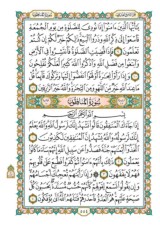 يَٰٓأَيُّهَا ٱلَّذِينَ ءَامَنُوٓاْ إِذَا نُودِيَ لِلصَّلَوٰةِ مِن يَوۡمِ ٱلۡجُمُعَةِ
فَٱسۡعَوۡاْ إِلَىٰ ذِكۡرِ ٱللَّهِ وَذَرُواْ ٱلۡبَيۡعَۚ ذَٰلِكُمۡ خَيۡرٞ لَّكُمۡ إِن كُنتُمۡ
تَعۡلَمُونَ ٩ فَإِذَا قُضِيَتِ ٱلصَّلَوٰةُ فَٱنتَشِرُواْ فِي ٱلۡأَرۡضِ
وَٱبۡتَغُواْ مِن فَضۡلِ ٱللَّهِ وَٱذۡكُرُواْ ٱللَّهَ كَثِيرٗا لَّعَلَّكُمۡ تُفۡلِحُونَ
١٠ وَإِذَا رَأَوۡاْ تِجَٰرَةً أَوۡ لَهۡوًا ٱنفَضُّوٓاْ إِلَيۡهَا وَتَرَكُوكَ قَآئِمٗاۚ قُلۡ مَا
عِندَ ٱللَّهِ خَيۡرٞ مِّنَ ٱللَّهۡوِ وَمِنَ ٱلتِّجَٰرَةِۚ وَٱللَّهُ خَيۡرُ ٱلرَّٰزِقِينَ ١١
سُورَةُ المُنَافِقُون
بِسۡمِ ٱللَّهِ ٱلرَّحۡمَٰنِ ٱلرَّحِيمِ
إِذَا جَآءَكَ ٱلۡمُنَٰفِقُونَ قَالُواْ نَشۡهَدُ إِنَّكَ لَرَسُولُ ٱللَّهِۗ وَٱللَّهُ يَعۡلَمُ
إِنَّكَ لَرَسُولُهُۥ وَٱللَّهُ يَشۡهَدُ إِنَّ ٱلۡمُنَٰفِقِينَ لَكَٰذِبُونَ ١ ٱتَّخَذُوٓاْ
أَيۡمَٰنَهُمۡ جُنَّةٗ فَصَدُّواْ عَن سَبِيلِ ٱللَّهِۚ إِنَّهُمۡ سَآءَ مَا كَانُواْ يَعۡمَلُونَ
٢ ذَٰلِكَ بِأَنَّهُمۡ ءَامَنُواْ ثُمَّ كَفَرُواْ فَطُبِعَ عَلَىٰ قُلُوبِهِمۡ
فَهُمۡ لَا يَفۡقَهُونَ ٣ ۞ وَإِذَا رَأَيۡتَهُمۡ تُعۡجِبُكَ أَجۡسَامُهُمۡۖ
وَإِن يَقُولُواْ تَسۡمَعۡ لِقَوۡلِهِمۡۖ كَأَنَّهُمۡ خُشُبٞ مُّسَنَّدَةٞۖ يَحۡسَبُونَ كُلَّ
صَيۡحَةٍ عَلَيۡهِمۡۚ هُمُ ٱلۡعَدُوُّ فَٱحۡذَرۡهُمۡۚ قَٰتَلَهُمُ ٱللَّهُۖ أَنَّىٰ يُؤۡفَكُونَ ٤